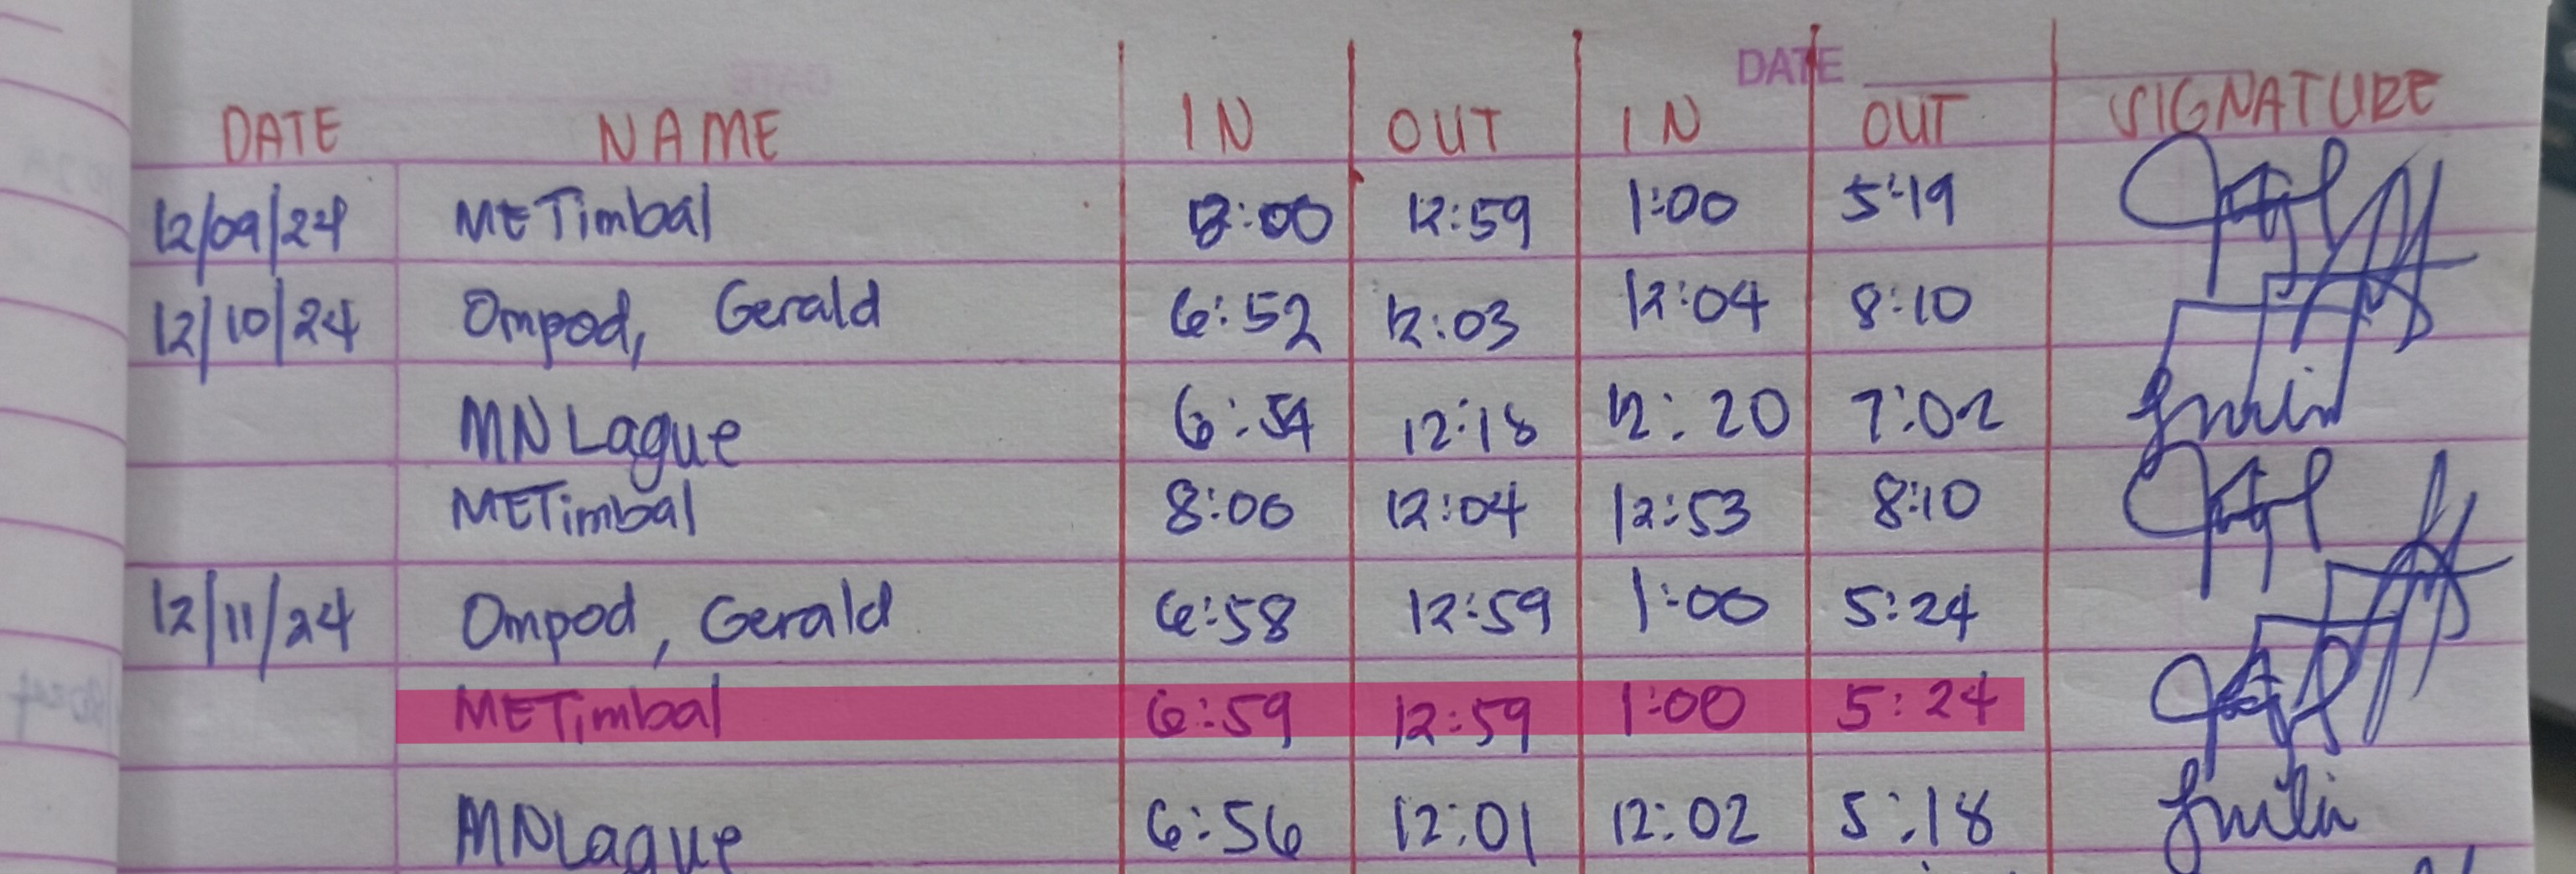 DATE
DATE NAME IN OUT IN OUT SIGNATURE
12/09/24 METimbal 8:00 12:59 1:00 5:19
12/10/24 Ompod, Gerald 6:52 12:03 12:04 8:10
MNLague 6:54 12:18 12:20 7:02
METimbal 8:00 12:04 12:53 8:10
12/11/24 Ompod, Gerald 6:58 12:59 1:00 5:24
METimbal 6:59 12:59 1:00 5:24
MNLague 6:56 12:01 12:02 5:18